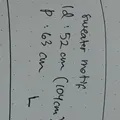 Sweater motif
ld : 52 cm (104 cm
p : 63 cm
L